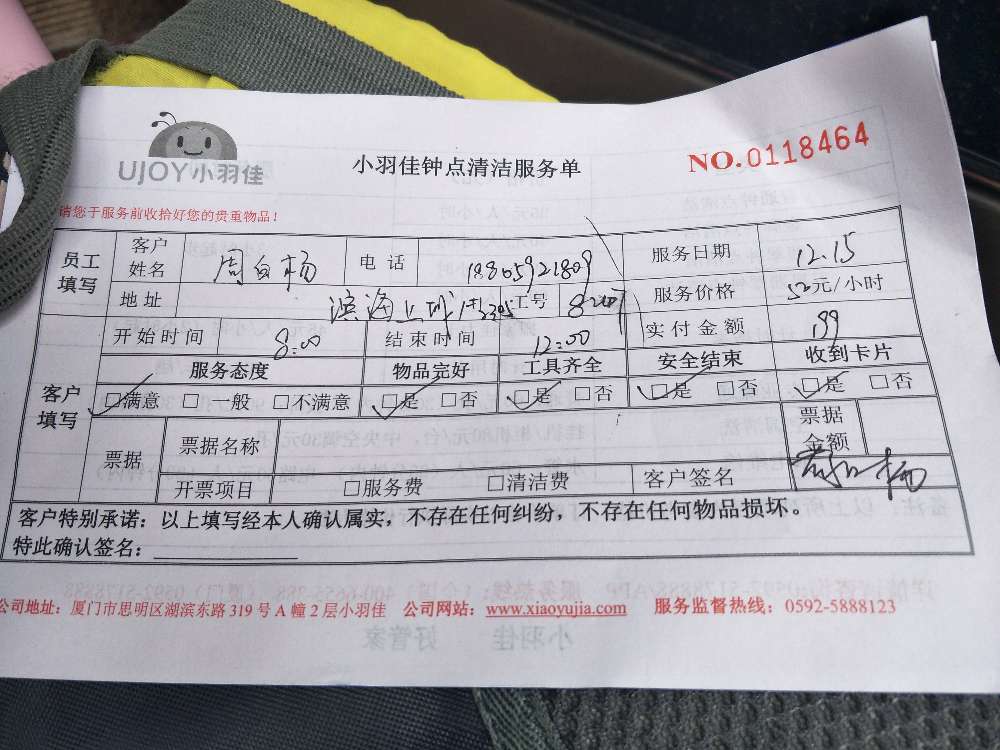 UJOY小羽佳
小羽佳钟点清洁服务单
NO.0118464
请您于服务前收拾好您的贵重物品！
员工填写 客户姓名 周白杨 电话 18805921809 服务日期 12.15
地址 滨海上城 工号 服务价格 50元/小时
开始时间 8:00 结束时间 12:00 实付金额 199
客户填写 服务态度 物品完好 工具齐全 安全结束 收到卡片
☑满意 □一般 □不满意 ☑是 □否 ☑是 □否 ☑是 □否 ☑是 □否
票据 票据名称 票据金额
开票项目 □服务费 □清洁费 客户签名 周白杨
客户特别承诺：以上填写经本人确认属实，不存在任何纠纷，不存在任何物品损坏。
特此确认签名：
公司地址：厦门市思明区湖滨东路319号A幢2层小羽佳 公司网站：www.xiaoyujia.com 服务监督热线：0592-5888123